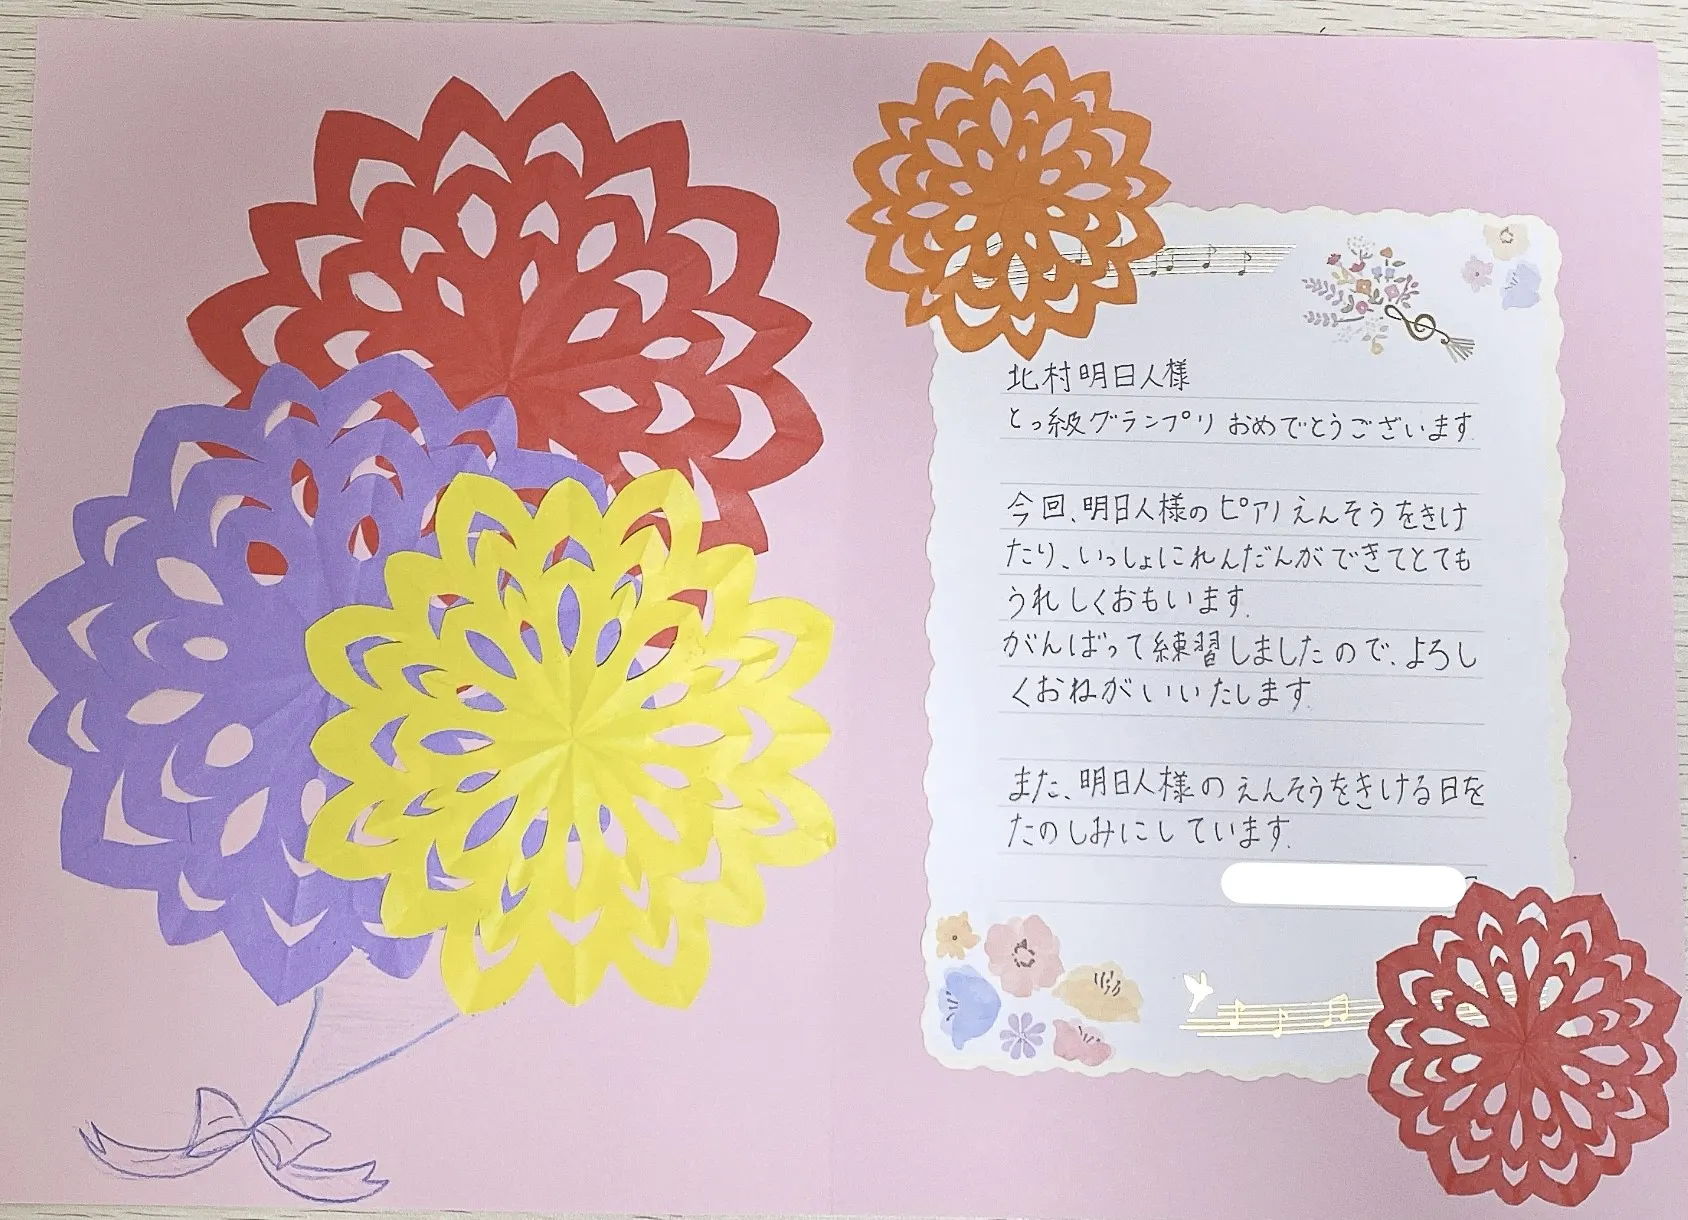 北村明日人様
とっ級グランプリ おめでとうございます.
今回、明日人様のピアノえんそうをきけ
たり、いっしょにれんだんができてとても
うれしくおもいます.
がんばって練習しましたので、よろし
くおねがいいたします.
また、明日人様のえんそうをきける日を
たのしみにしています.